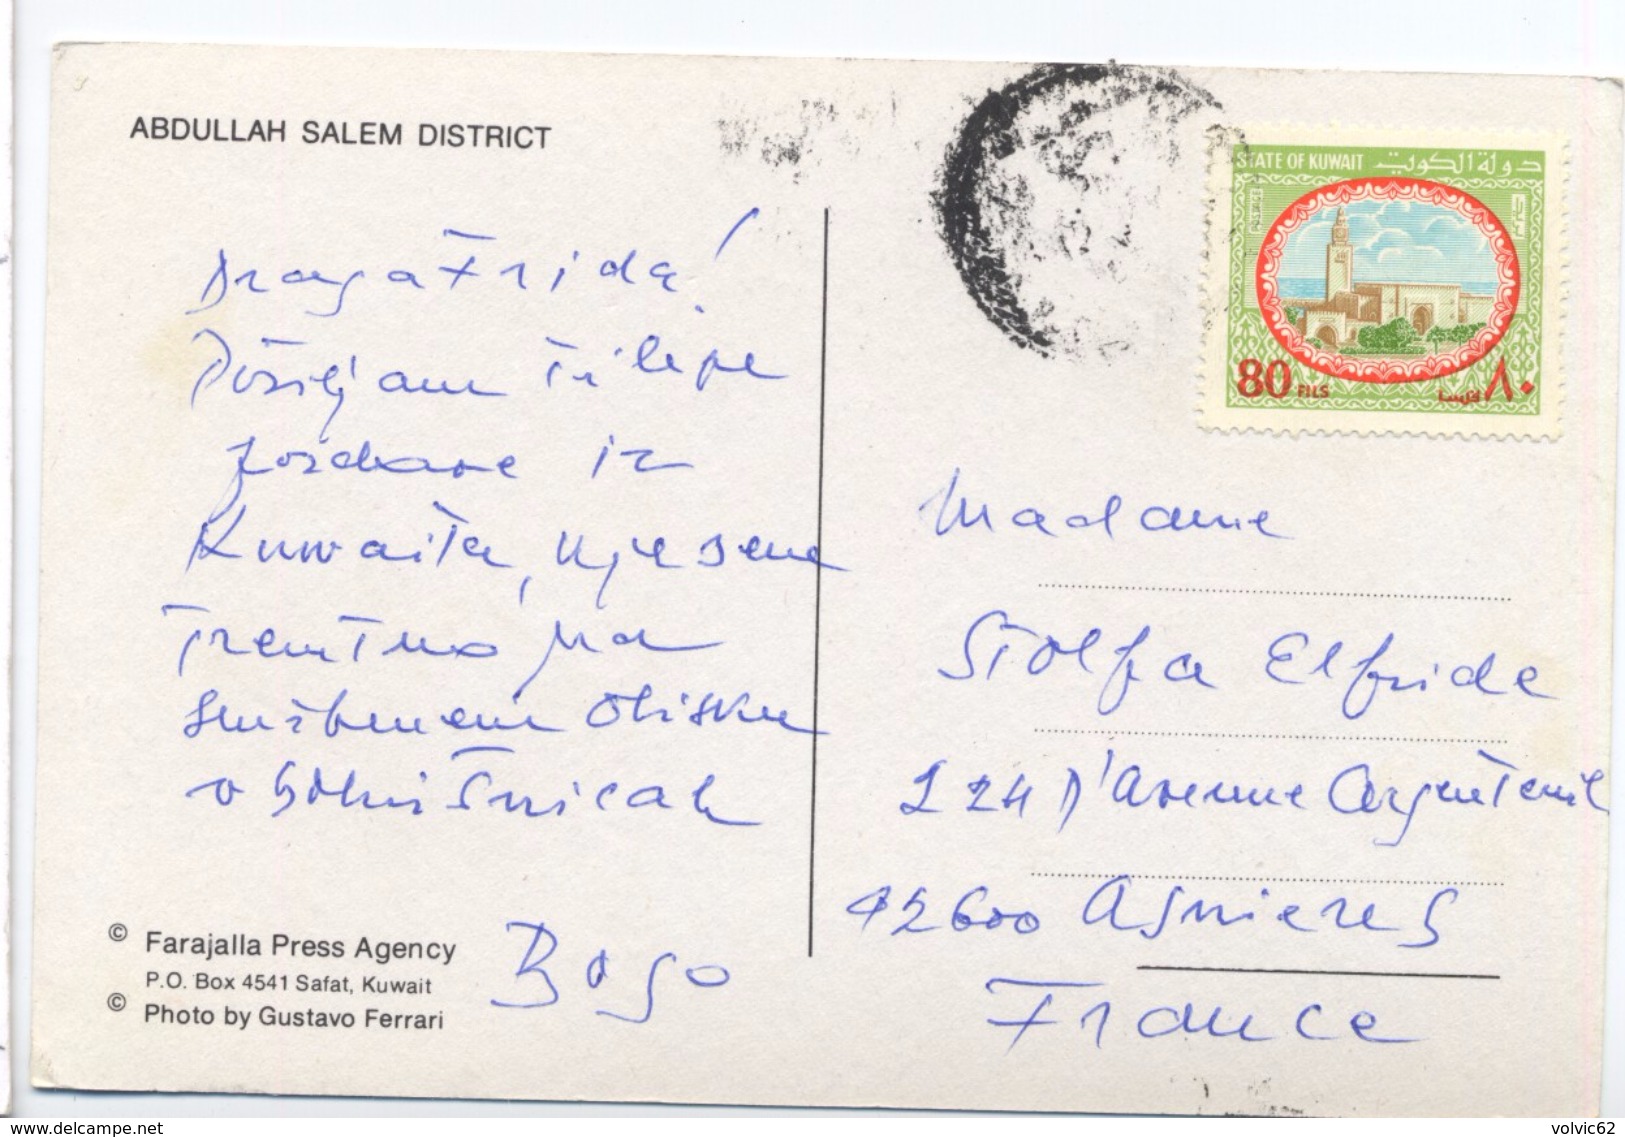 ABDULLAH SALEM DISTRICT
Draga Frida!
Pošiljam ti lepe
pozdrave iz
Kuwaita, kjer sem
trenutno na
službenem obisku
v bolnišnicah
Bogo
© Farajalla Press Agency
P.O. Box 4541 Safat, Kuwait
© Photo by Gustavo Ferrari
STATE OF KUWAIT دولة الكويت
POSTAGE
80 FILS ٨٠ فلسا
Madame
Stolfa Elfride
224 D'Avenue Argenteuil
92600 Asnieres
France
www.delcampe.net
volvic62